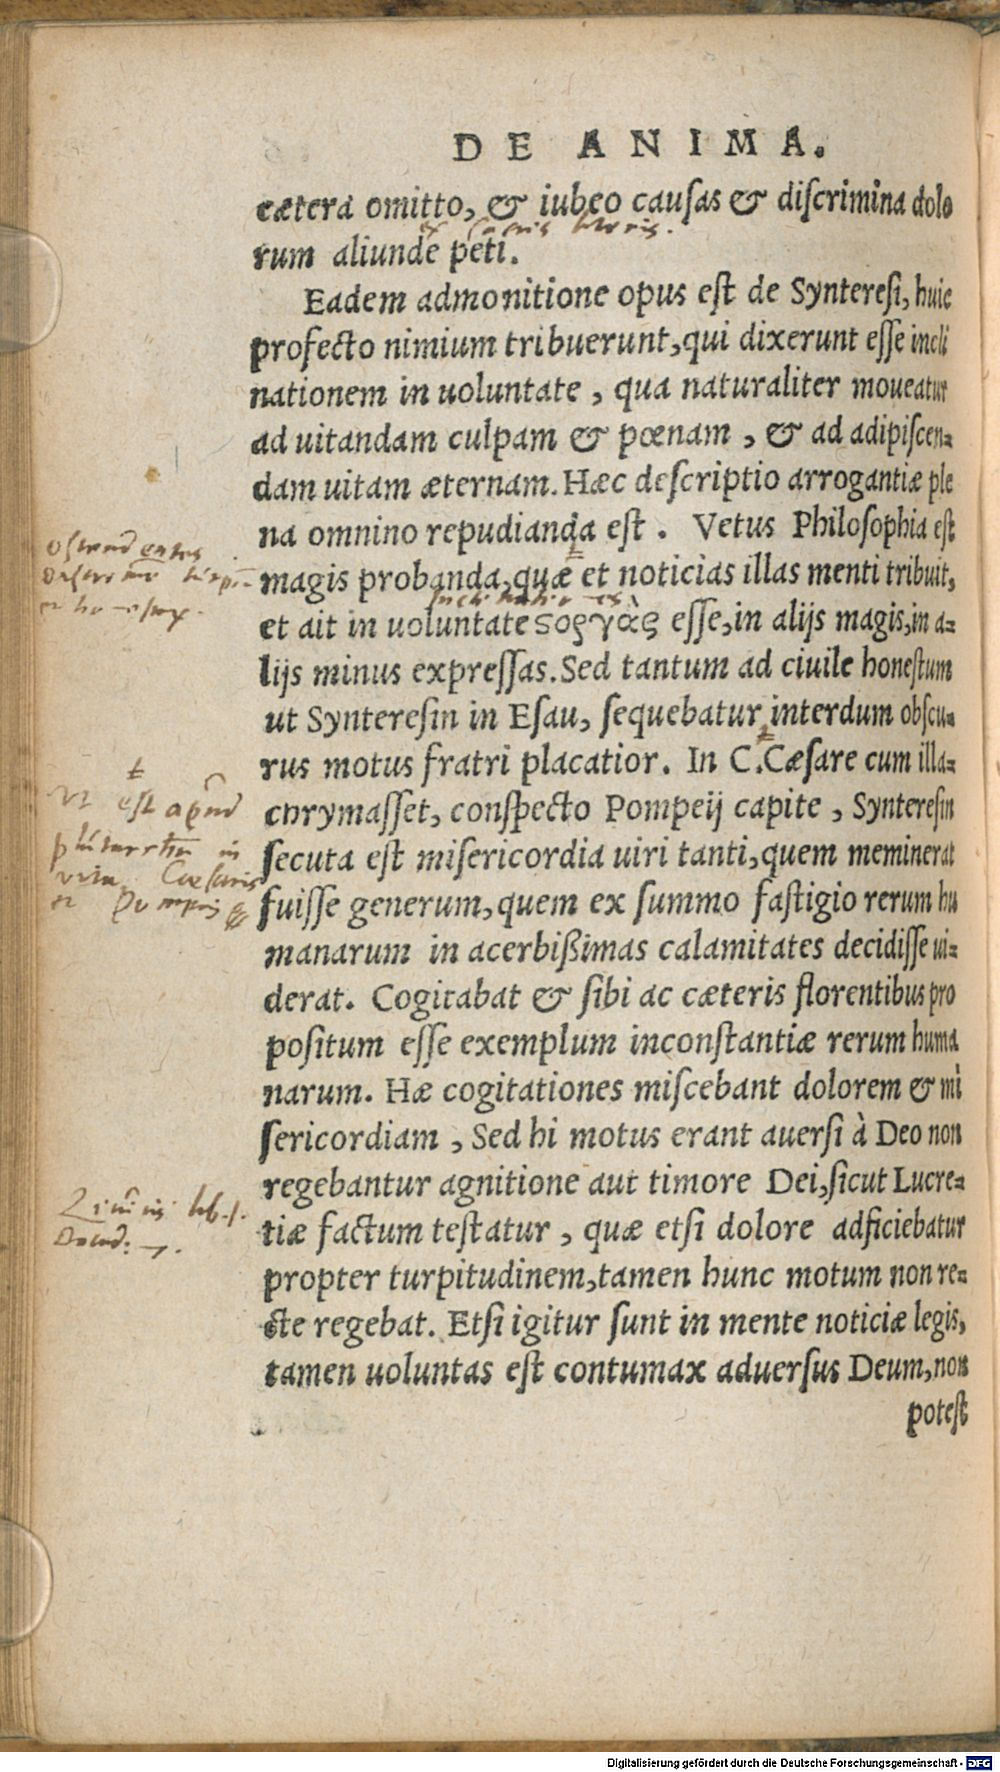 DE ANIMA.
cætera omitto, & iubeo causas & discrimina dolo
ex sacris literis.
rum aliunde peti.
Eadem admonitione opus est de Synteresi, huic
profecto nimium tribuerunt, qui dixerunt esse incli
nationem in uoluntate, qua naturaliter moueatur
ad uitandam culpam & pœnam, & ad adipiscen=
dam uitam æternam. Hæc descriptio arrogantiæ ple
na omnino repudianda est. Vetus Philosophia est
magis probanda, quæ et noticias illas menti tribuit,
inclinationes
et ait in uoluntate ϛοργὰς esse, in alijs magis, in a=
lijs minus expressas. Sed tantum ad ciuile honestum
ut Synteresin in Esau, sequebatur interdum obscu=
rus motus fratri placatior. In C. Cæsare cum illa=
chrymasset, conspecto Pompeij capite, Synteresin
secuta est misericordia uiri tanti, quem meminerat
fuisse generum, quem ex summo fastigio rerum hu
manarum in acerbißimas calamitates decidisse ui=
derat. Cogitabat & sibi ac cæteris florentibus pro
positum esse exemplum inconstantiæ rerum huma
narum. Hæ cogitationes miscebant dolorem & mi
sericordiam, Sed hi motus erant auersi à Deo non
regebantur agnitione aut timore Dei, sicut Lucre=
tiæ factum testatur, quæ etsi dolore adficiebatur
propter turpitudinem, tamen hunc motum non re=
cte regebat. Etsi igitur sunt in mente noticiæ legis,
tamen uoluntas est contumax aduersus Deum, non
potest
vt est apud
plutarchum in
vita Cæsaris
et Pompeij
Liuius lib. 1.
Decad:
Digitalisierung gefördert durch die Deutsche Forschungsgemeinschaft - DFG